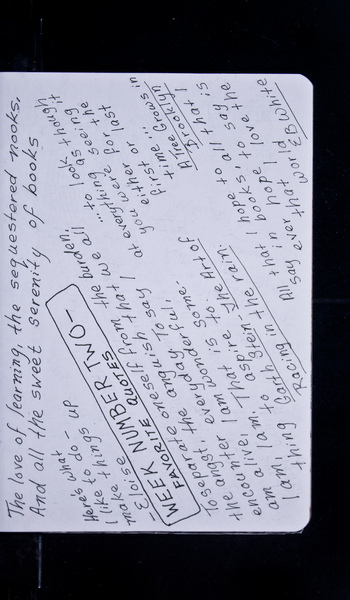 The love of learning, the sequestered nooks,
And all the sweet serenity of books
Here's what
I like to do-
make things up
Eloise
WEEK NUMBER TWO-
FAVORITE QUOTES
To separate oneself from the burden,
the angst, the anguish that we all
encounter everyday. To say I
am alive, I am wonderful,
I am. I am. That is some-
thing to aspire to.
Garth Stein The Art of
Racing in the rain.
... to look
at everything as though
you were seeing it
either for the
first or last
time...
A Tree Grows in
Brooklyn
All that I hope to say
in books, all that I
ever hope to say is
that I love the
world
EB White